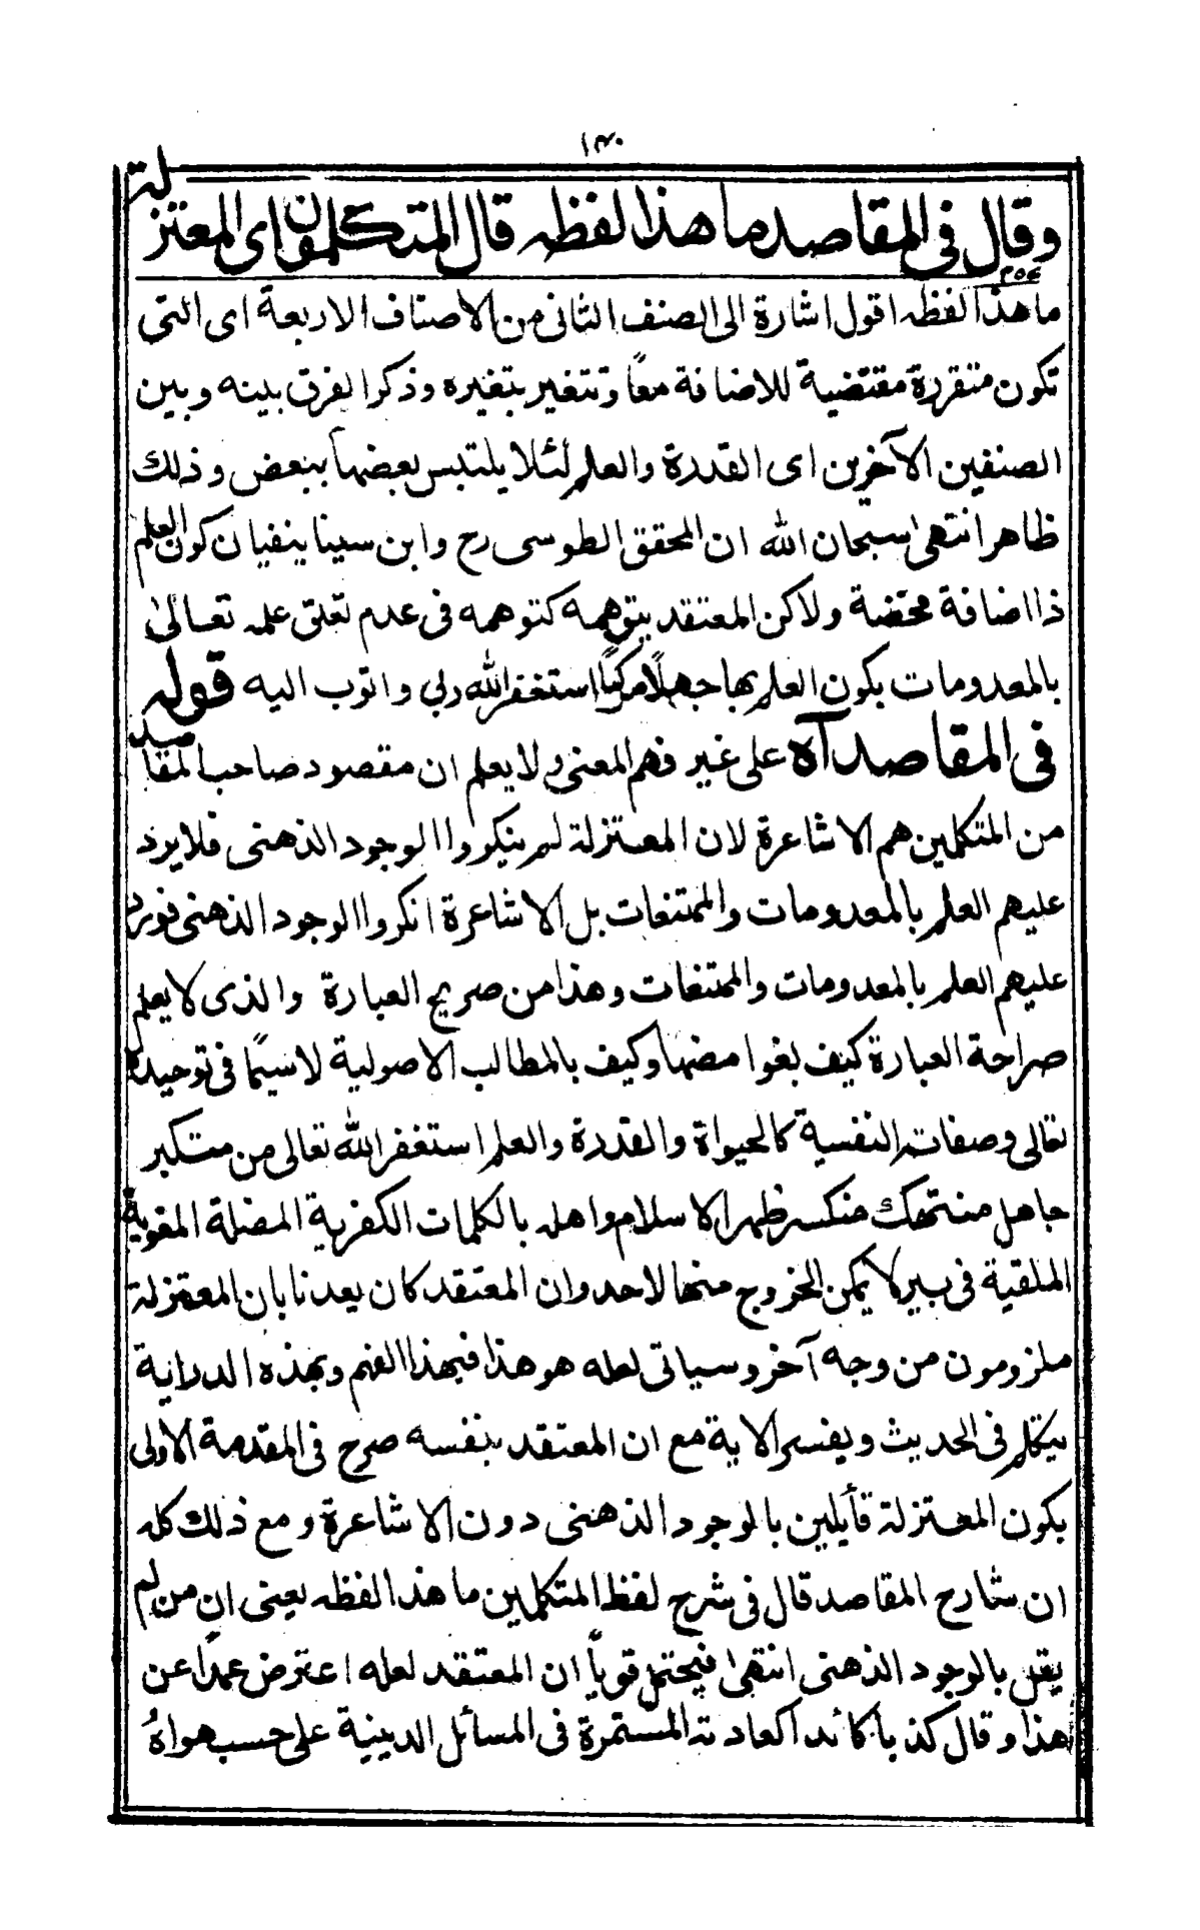 ١٣٠
وقال فى المقاصد ما هذا لفظه قال المتكلمون اى المعتزلة
٢٥٤
ما هذا لفظه اقول اشارة الى الصنف الثانى من الاصناف الاربعة اى التى
تكون متقررة مقتضية للاضافة معاً وتتغير بتغيره وذكر الفرق بينه وبين
الصنفين الآخرين اى القدرة والعلم لئلا يلتبس بعضها ببعض وذلك
ظاهر انتهى سبحان الله ان المحقق الطوسى رح وابن سينا ينفيان كون العلم
ذا اضافة محضة ولاكن المعتقد يتوهمه كتوهمه فى عدم تعلق علمه تعالىٰ
بالمعدومات بكون العلم بها جهلاً مركباً استغفر الله ربى واتوب اليه قوله
فى المقاصد آه على غير فهم المعنى ولا يعلم ان مقصود صاحب المقاصد
من المتكلمين هم الاشاعرة لان المعتزلة لم ينكروا الوجود الذهنى فلا يرد
عليهم العلم بالمعدومات والممتنعات بل الاشاعرة انكروا الوجود الذهنى فورد
عليهم العلم بالمعدومات والممتنعات وهذا من صريح العبارة والذى لا يعلم
صراحة العبارة كيف بغوامضها وكيف بالمطالب الاصولية لا سيما فى توحيده
تعالى وصفاته النفسية كالحيواة والقدرة والعلم استغفر الله تعالى من متكبر
جاهل منتهك منكسر ظهر الاسلام واهله بالكلمات الكفرية المضلة المغوية
الملقية فى بير لا يمكن الخروج منها لاحد وان المعتقد كان يعدنا بان المعتزلة
ملزومون من وجه آخر وسياتى لعله هو هذا فبهذا الفهم وبهذه الدراية
يتكلم فى الحديث ويفسر الاية مع ان المعتقد بنفسه صرح فى المقدمة الاولى
بكون المعتزلة قأيلين بالوجود الذهنى دون الاشاعرة ومع ذلك كله
ان شارح المقاصد قال فى شرح لفظ المتكلمين ما هذا لفظه يعنى ان من لم
يقل بالوجود الذهنى انتهى فيحتمل قوياً ان المعتقد لعله اعترض عمداً عن
هذا وقال كذباً كائداً كعادته المستمرة فى المسائل الدينية على حسب هواهُ